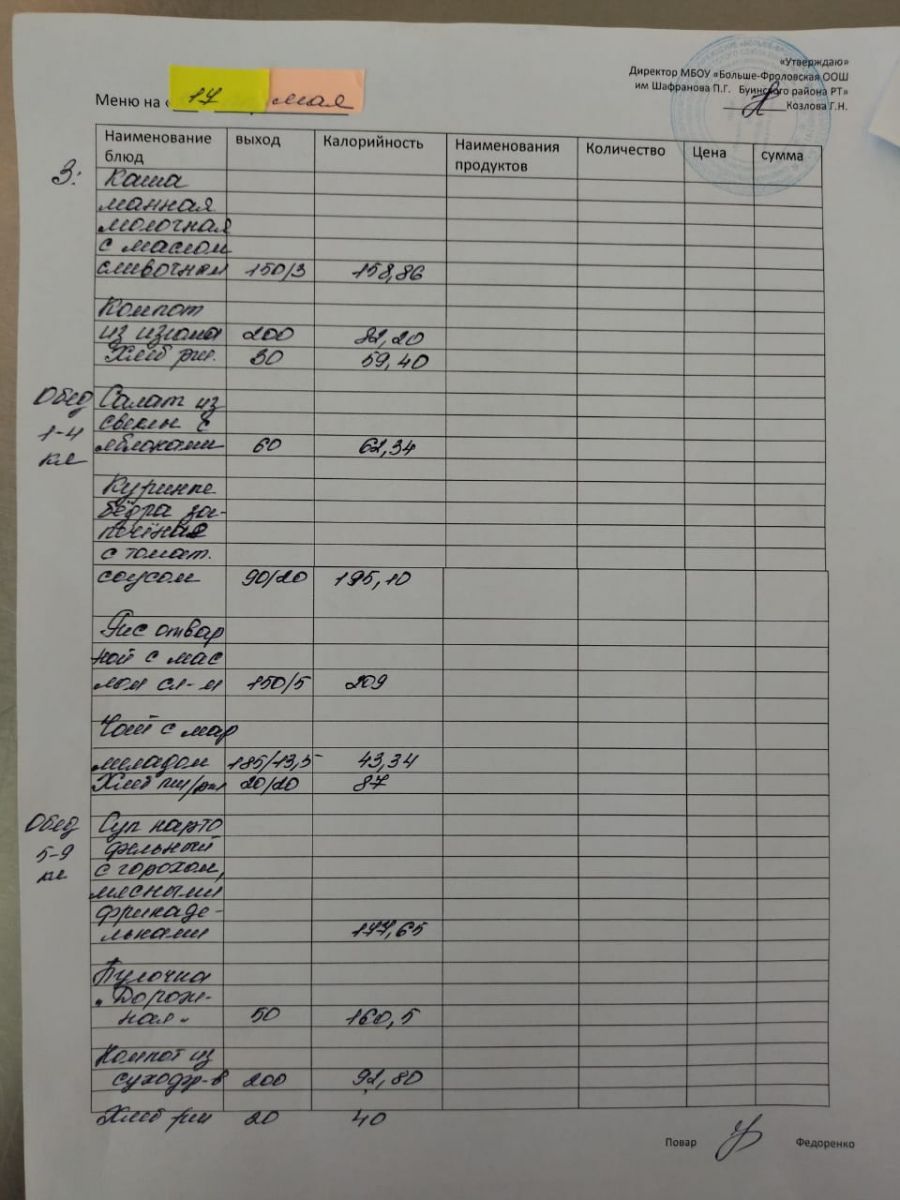 «Утверждаю»
Директор МБОУ «Больше-Фроловская ООШ
им Шафранова П.Г. Буинского района РТ»
Козлова Г.Н.
Меню на « 17 мая
Наименование блюд выход Калорийность Наименования продуктов Количество Цена сумма
З: Каша
манная
молочная
с маслом
сливочным 150/3 158,86
Компот
из изюма 200 82,20
Хлеб рж. 30 59,40
Обед Салат из
1-4 свеклы с
кл яблоками 60 62,34
Куриные
бёдра за-
печёные
с томат.
соусом 90/20 195,10
Рис отвар
ной с мас
лом сл-м 150/5 209
Чай с мар
меладом 185/13,5 43,34
Хлеб пш/рж 20/20 87
Обед Суп карто
5-9 фельный
кл с горохом,
мясными
фрикаде-
льками 177,65
Булочка
"Дорож-
ная" 50 160,5
Компот из
сухофр-в 200 92,80
Хлеб рж 20 40
Повар Федоренко